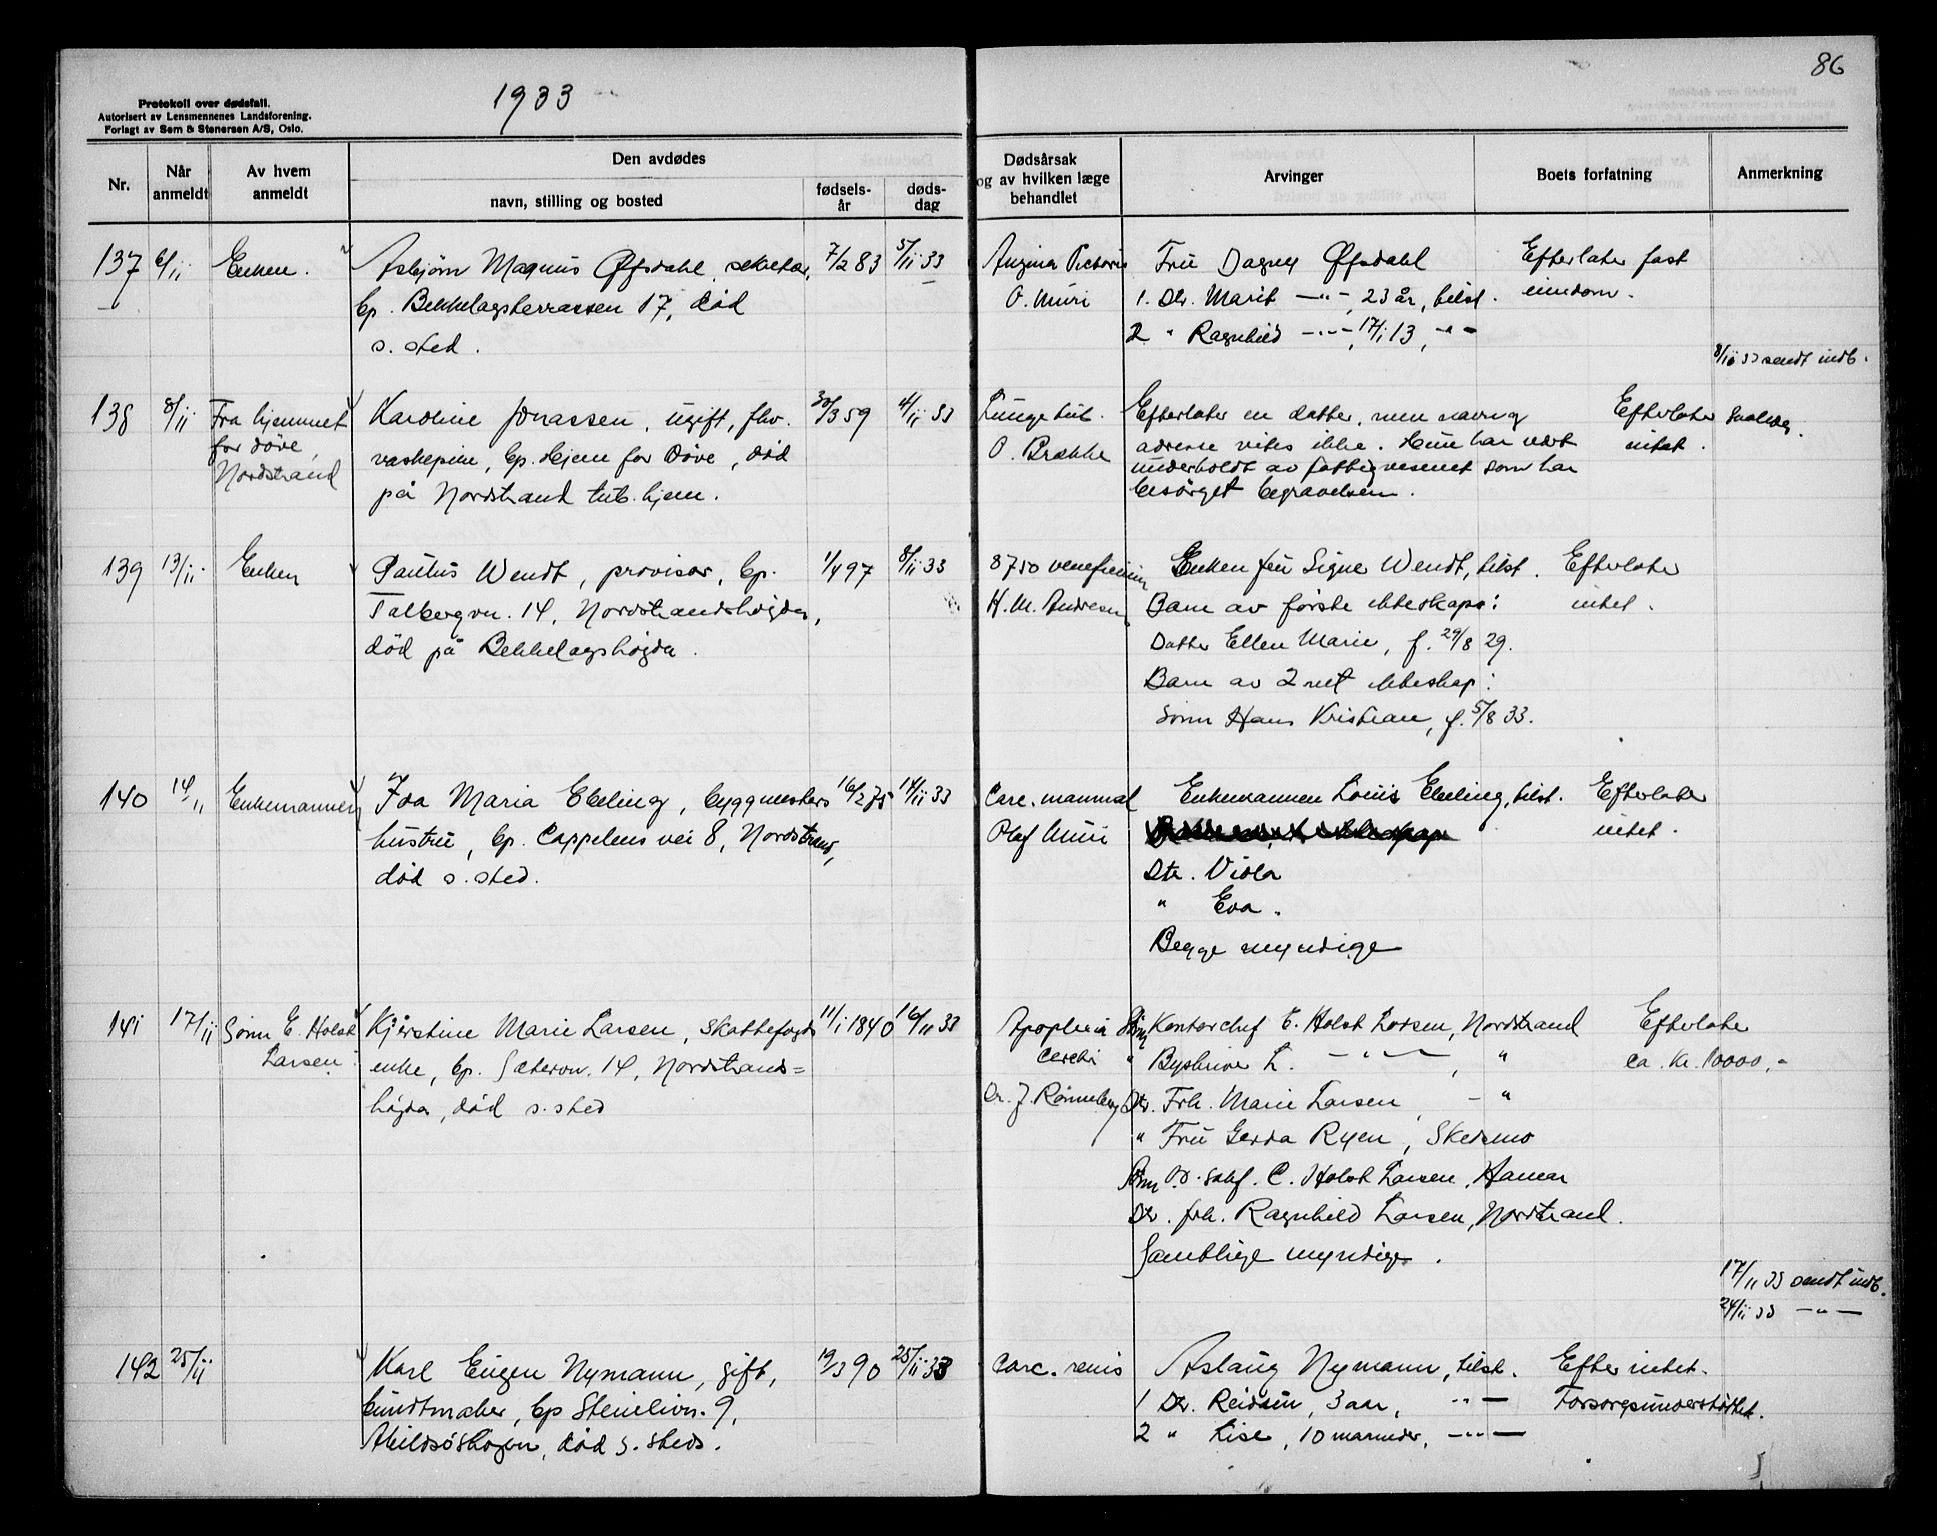 86
1933
Protokoll over dødsfall.
Autorisert av Lensmennenes Landsforening.
Forlagt av Sem & Stenersen A/S, Oslo.
Nr. Når anmeldt Av hvem anmeldt Den avdødes navn, stilling og bosted fødsels-år døds-dag
Dødsårsak og av hvilken læge behandlet Arvinger Boets forfatning Anmerkning
137 6/11 Enken. Asbjørn Magnus Øfsdahl sekretær, 7/2 83 5/11 33
bp. Bekkelagsterrassen 17, død
s. sted.
Angina Pectoris Fru Dagny Øfsdahl Efterlater fast
O. Muri 1. Dtr. Marit —"—, 23 år, tilst. eiendom.
2 " Ragnhild —"—, 17/1 13, —"—
8/11 33 sendt indb.
138 8/11 Fra hjemmet Karoline Jonassen, ugift, fhv. 30/3 59 4/11 33
for døve, vaskepike, bp. Hjem for Døve, død
Nordstrand på Nordstrand tub. hjem.
Lunge tub. Efterlater en datter, men navn og Efterlater
O. Brække adresse vites ikke. Hun har vært intet.
underholdt av fattigvesenet som har
besørget begravelsen.
139 13/11 Enken Paulus Wendt, provisor, bp. 1/4 97 8/11 33
Talbergvn. 14, Nordstrandshøgda,
død på Bekkelagshøgda.
8750 veneficium Enken fru Signe Wendt, tilst. Efterlater
K. M. Andresen Barn av første ekteskap: intet.
Datter Ellen Marie, f. 29/8 29.
Barn av 2net ekteskap:
Sønn Hans Kristian, f. 5/8 33.
140 14/11 Enkemannen Ida Maria Ebeling, byggmesters 16/2 75 14/11 33
hustru, bp. Cappelens vei 8, Nordstrand,
død s. sted.
Carc. mammal Enkemannen Louis Ebeling, tilst. Efterlater
Olaf Muri intet.
Dtr. Viola
" Eva.
Begge myndige
141 17/11 Sønn E. Holst Kjerstine Marie Larsen, skattefogds 11/1 1840 16/11 33
Larsen enke, bp. Sætervn. 14, Nordstrands=
høgda, død s. sted
Apoplexia Sønn Kontorchef E. Holst Larsen, Nordstrand Efterlater
cerebri " Byskriver L. —"—, " ca. kr. 10000,-
Dr. J. Rønneberg Dtr. Frk. Marie Larsen, - "
" Fru Gerda Ryen, Skedsmo
Sønn O.r.sakf. C. Holst Larsen, Hamar
Dtr. frk. Ragnhild Larsen, Nordstrand.
Samtlige myndige.
17/11 33 sendt indb.
24/11 33 —"—
142 25/11 Karl Eugen Nymann, gift, 19/3 90 25/11 33
buntmaker, bp Steinlivn. 9,
Abildsøhøgda, død s. steds.
Carc. renis Aslaug Nymann, tilst. Efter intet.
1 Dtr. Reidun, 3 aar, "— Forsorgsunderstøttet.
2 " Lise, 10 maaneder, —"—